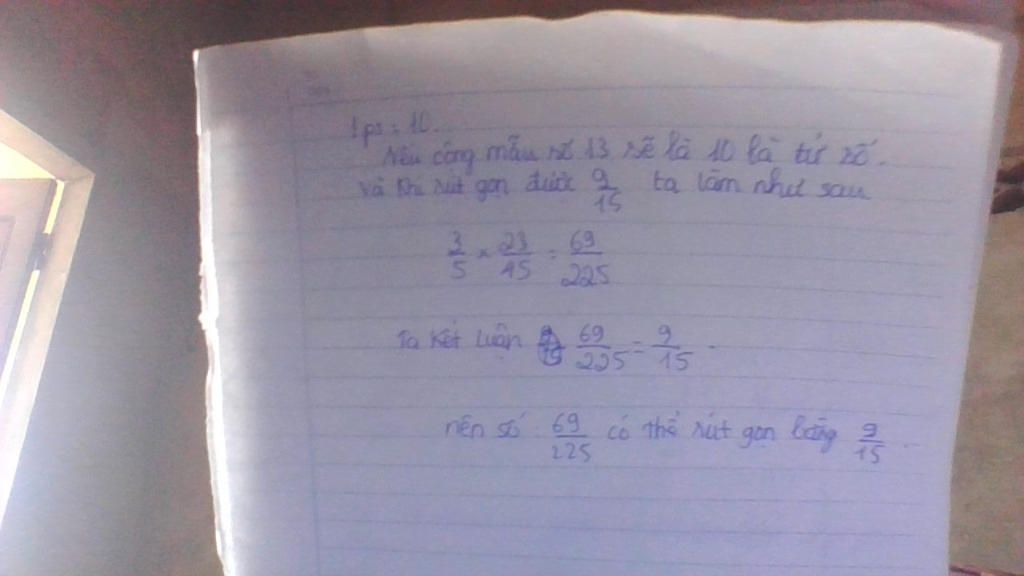 1 ps = 10.
Nếu cộng mẫu số 13 sẽ là 10 là tử số.
và khi rút gọn được 9/15 ta làm như sau
3/5 × 23/45 = 69/225
Ta kết luận 69/225 = 9/15.
nên số 69/225 có thể rút gọn bằng 9/15.